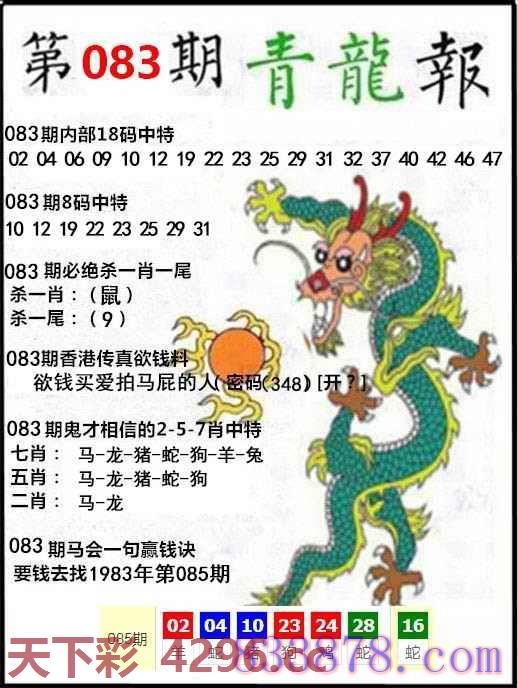 第083期青龍報
083期内部18码中特
02 04 06 09 10 12 19 22 23 25 29 31 32 37 40 42 46 47
083期8码中特
10 12 19 22 23 25 29 31
083期必绝杀一肖一尾
杀一肖：（鼠）
杀一尾：（9）
083期香港传真欲钱料
欲钱买爱拍马屁的人(密码(348)[开?]
083期鬼才相信的2-5-7肖中特
七肖： 马-龙-猪-蛇-狗-羊-兔
五肖： 马-龙-猪-蛇-狗
二肖： 马-龙
083期马会一句赢钱诀
要钱去找1983年第085期
085期 02 04 10 23 24 28 16
羊 蛇 猪 狗 鸡 蛇 蛇
天下彩 4296.cc